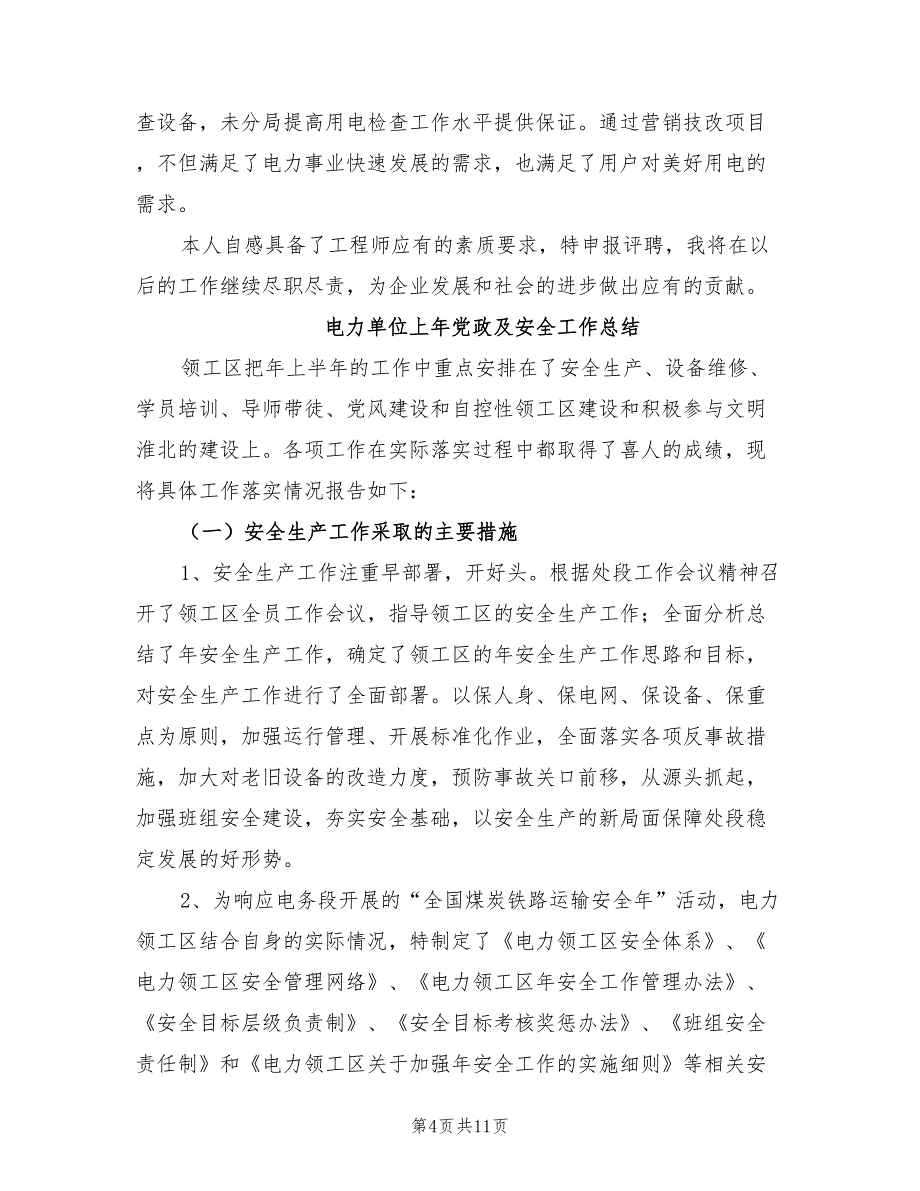 查设备，未分局提高用电检查工作水平提供保证。通过营销技改项目
，不但满足了电力事业快速发展的需求，也满足了用户对美好用电的
需求。
本人自感具备了工程师应有的素质要求，特申报评聘，我将在以
后的工作继续尽职尽责，为企业发展和社会的进步做出应有的贡献。
电力单位上年党政及安全工作总结
领工区把年上半年的工作中重点安排在了安全生产、设备维修、
学员培训、导师带徒、党风建设和自控性领工区建设和积极参与文明
淮北的建设上。各项工作在实际落实过程中都取得了喜人的成绩，现
将具体工作落实情况报告如下：
（一）安全生产工作采取的主要措施
1、安全生产工作注重早部署，开好头。根据处段工作会议精神召
开了领工区全员工作会议，指导领工区的安全生产工作；全面分析总
结了年安全生产工作，确定了领工区的年安全生产工作思路和目标，
对安全生产工作进行了全面部署。以保人身、保电网、保设备、保重
点为原则，加强运行管理、开展标准化作业，全面落实各项反事故措
施，加大对老旧设备的改造力度，预防事故关口前移，从源头抓起，
加强班组安全建设，夯实安全基础，以安全生产的新局面保障处段稳
定发展的好形势。
2、为响应电务段开展的“全国煤炭铁路运输安全年”活动，电力
领工区结合自身的实际情况，特制定了《电力领工区安全体系》、《
电力领工区安全管理网络》、《电力领工区年安全工作管理办法》、
《安全目标层级负责制》、《安全目标考核奖惩办法》、《班组安全
责任制》和《电力领工区关于加强年安全工作的实施细则》等相关安
第4页共11页